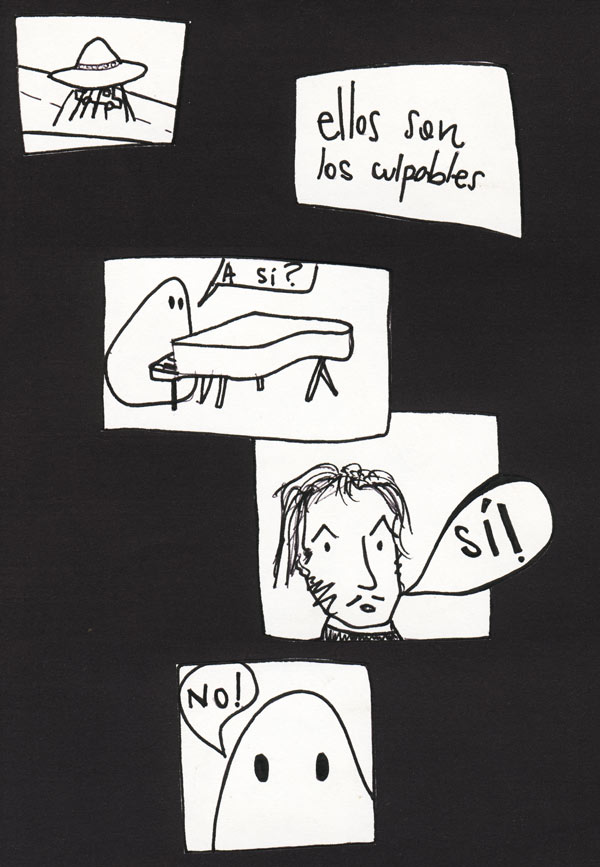 ellos son
los culpables
A si?
sí!
NO!